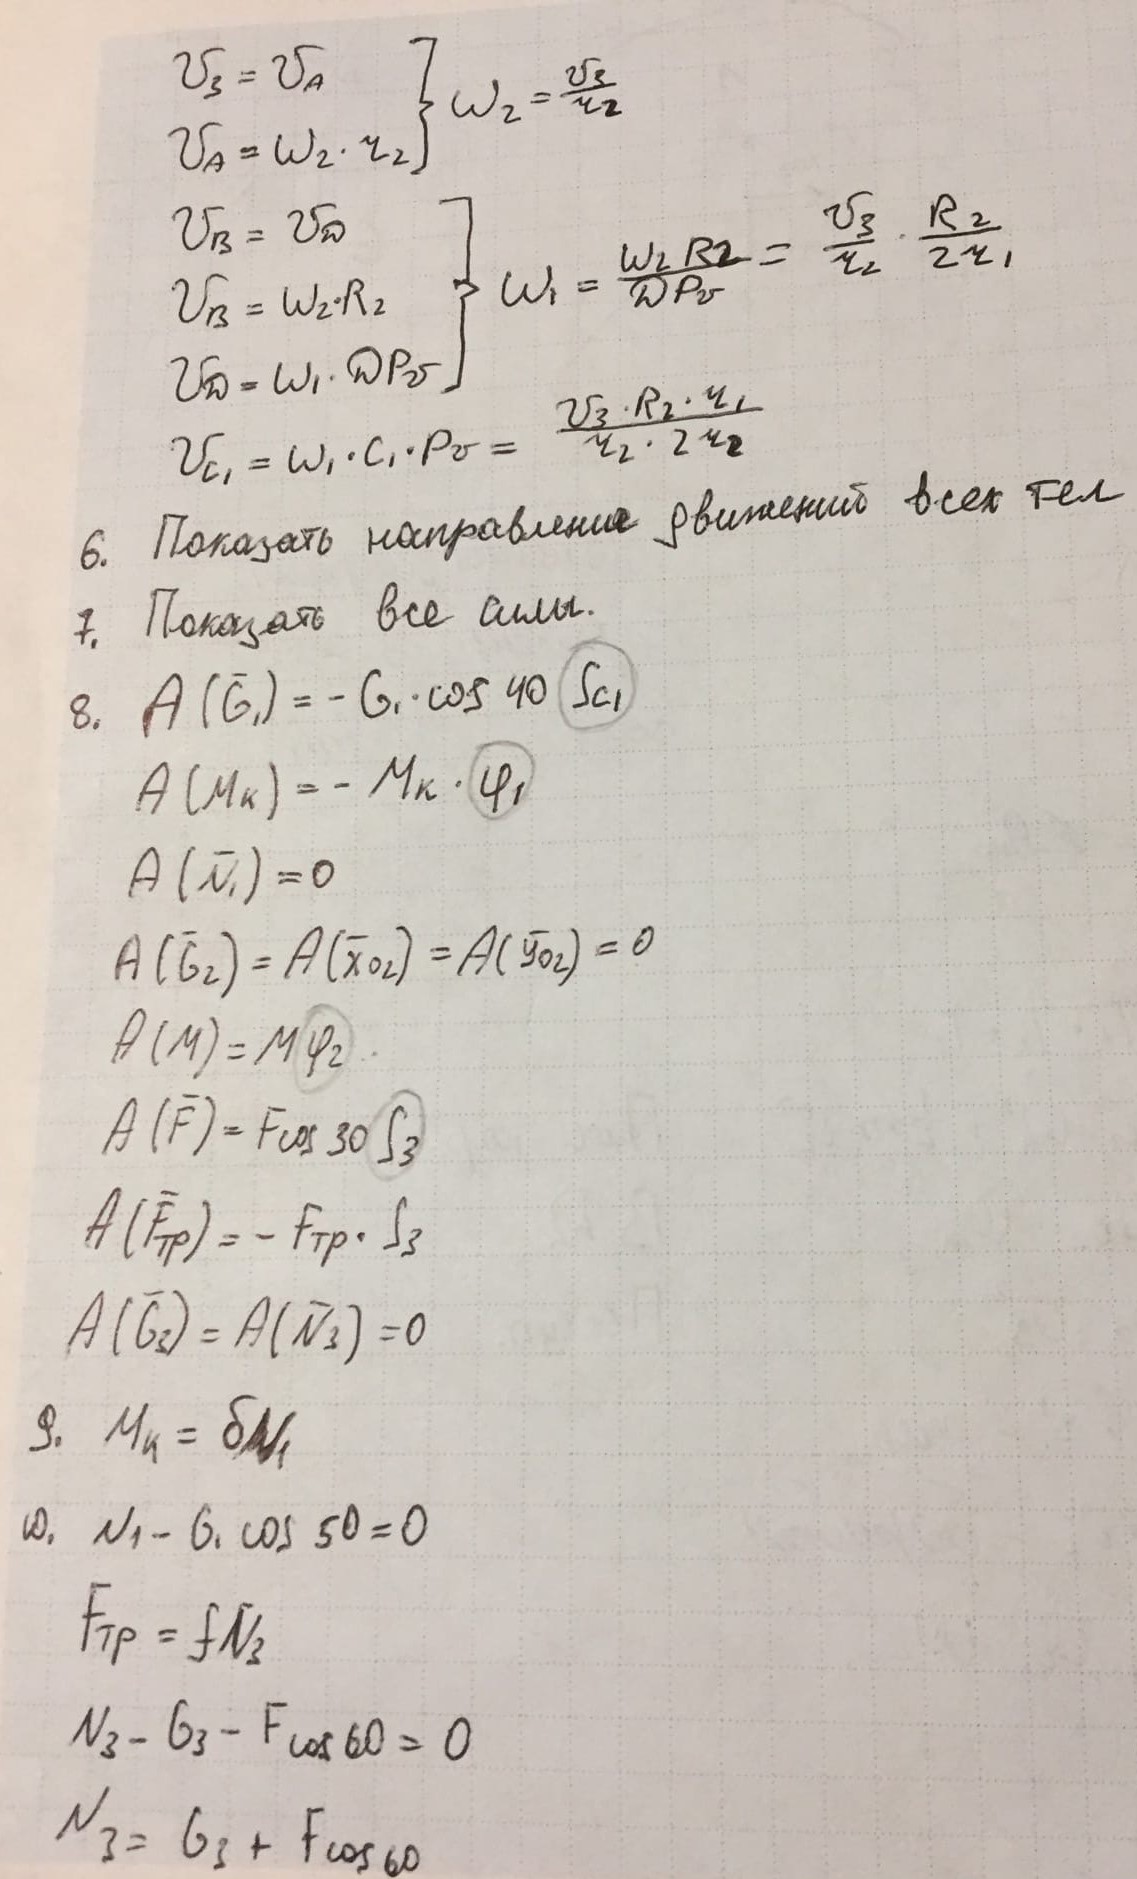 V₃ = V_A } ω₂ = V₃/r₂
V_A = ω₂ · r₂
V_B = V_D } ω₁ = ω₂ R₂ / DP_v = V₃/r₂ · R₂/2r₁
V_B = ω₂·R₂
V_D = ω₁ · DP_v
V_C₁ = ω₁ · C₁ · P_v = V₃ · R₂ · r₁ / r₂ · 2r₂
6. Показать направление движений всех тел
7. Показать все силы.
8. A(Ḡ₁) = - G₁ · cos 40 S_C₁
A(M_к) = - M_к · φ₁
A(N̄₁) = 0
A(Ḡ₂) = A(x̄_O₂) = A(ȳ_O₂) = 0
A(M) = M φ₂
A(F̄) = F cos 30 S₃
A(F̄_тр) = - F_тр · S₃
A(Ḡ₃) = A(N̄₃) = 0
9. M_к = δN₁
10. N₁ - G₁ cos 50 = 0
F_тр = fN₃
N₃ - G₃ - F cos 60 = 0
N₃ = G₃ + F cos 60